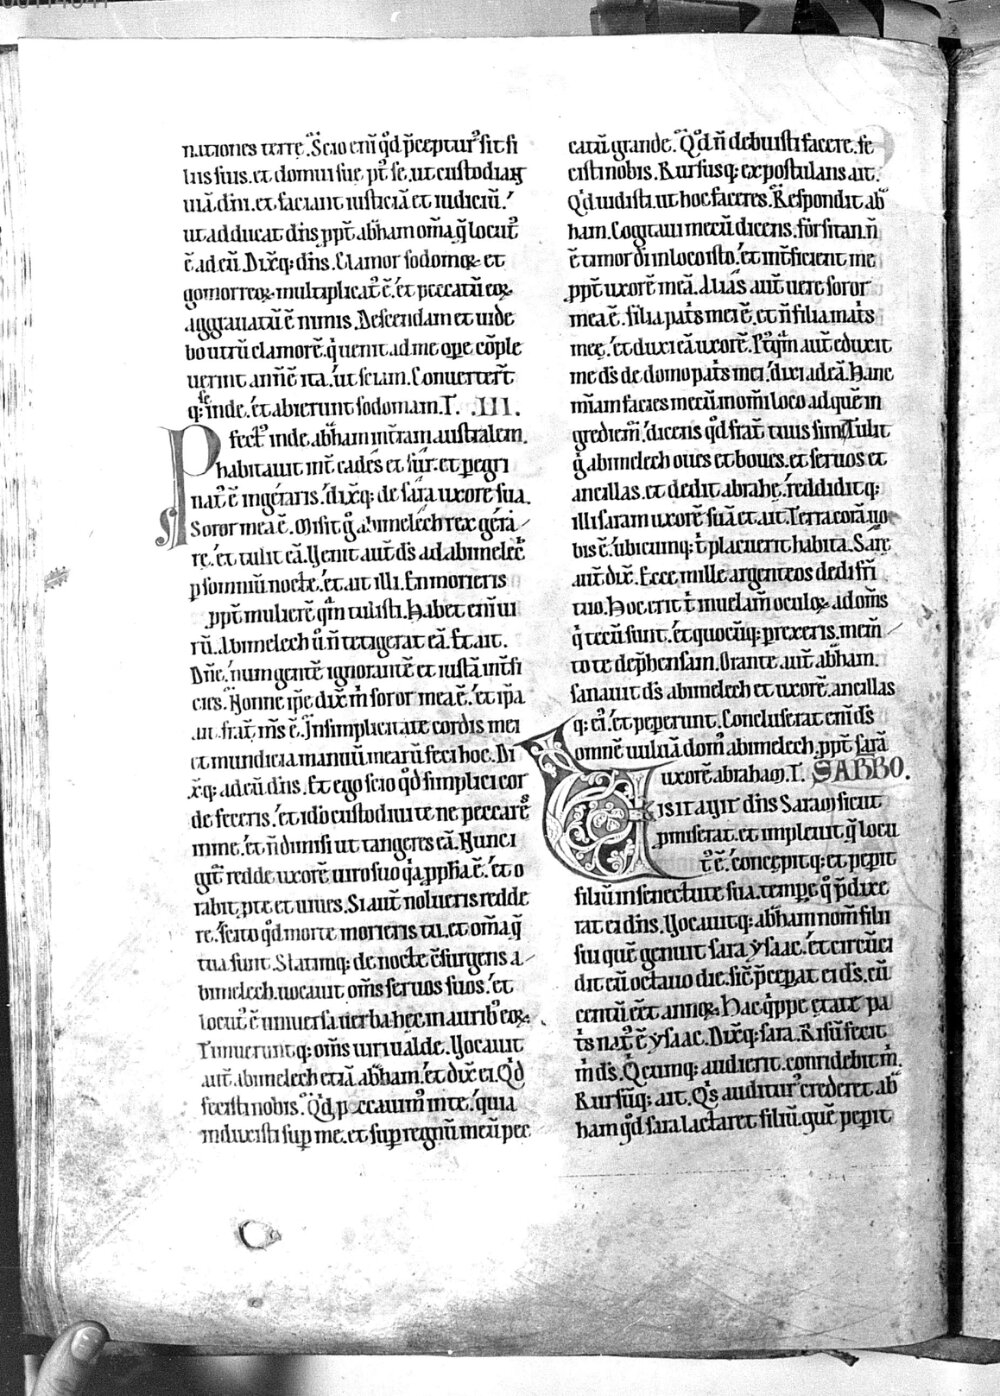 nationes terrę. Scio eni̅ qd̕ p̅cepturꝰ sit fi
liis suis. et domui suę p̅t se. ut custodiant
uia̅ dn̅i. et faciant iusticia̅ et iudiciu̅.
ut adducat dn̅s ppt̅ abh̅am om̅ia q̅ locutꝰ
e̅ ad eu̅. Dix̅q: dn̅s. Clamor sodomoꝝ et
gomorreoꝝ multiplicatꝰ e̅. et peccatu̅ eoꝝ
aggrauatu̅ e̅ nimis. Descendam et uide
bo utru̅ clamore̅. q̇ uenit ad me ope co̅ple
uerint. an n̅ e̅ ita. ut sciam. Conuerterꝰt
q: se inde. et abierunt sodomam. T. .III.
Pfectꝰ inde. abh̅am in t̅ram australem.
habitauit int̅ cades et sur. et pegri
natꝰ e̅ in geraris. dix̅q: de sara uxore sua.
Soror mea e̅. Misit g̊ abimelech rex gera
re. et tulit ea̅. Venit aut̅ ds̅ ad abimelec̅
p somniu̅ nocte. et ait illi. En morieris
ppt̅ muliere̅ qm̅ tulisti. Habet eni̅ ui
ru̅. Abimelech u̅ n̅ tetigerat ea̅. Et ait.
Dn̅e. num gente̅ ignorante̅ et iusta̅ int̅fi
cies. Nonne ip̅e dix̅ ṁ soror mea e̅. et ip̅a
ait frat̅ m̅s e̅. In simplicitate cordis mei
et mundicia manuu̅ mearu̅ feci hoc. Di
x̅q: ad eu̅ dn̅s. Et ego scio qd̕ simplici cor
de feceris. et ido custodiui te ne peccare̅
in me. et n̅ dimisi ut tangeres ea̅. Nunc i
git̅ redde uxore̅ uiro suo q̇a ppha e̅. et o
rabit. p te et uiues. Si aut̅ nolueris redde
re. scito qd̕ morte morieris tu. et om̅ia q̅
tua sunt. Statimq: de nocte c̅surgens a
bimelech. uocauit om̅s seruos suos. et
locutꝰ e̅ uniuersa uerba hec in auribꝰ eoꝝ.
Timueruntq: om̅s uiri ualde. Vocauit
aut̅ abimelech etia̅ abh̅am. et dix̅ ei. Qd̕
fecisti nobis. Qd̕ peccauimꝰ in te. quia
induxisti sup me. et sup regnu̅ meu̅ pec
catu̅ grande. Qd̕ n̅ debuisti facere. fe
cisti nobis. Rursusq: expostulans ait.
Qd̕ uidisti. ut hoc faceres. Respondit ab
ham. Cogitaui mecu̅ dicens. forsitan n̅
e̅ timor di̅ in loco isto. et int̅ficient me
ppt̅ uxore̅ mea̅. Alias aut̅ uere soror
mea e̅. filia pat̅s mei e̅. et n̅ filia mat̅s
meę. et duxi ea̅ uxore̅. Pꝰq̅m aut̅ eduxit
me ds̅ de domo pat̅s mei. dixi ad ea̅. Hanc
mi̅am facies mecu̅ in om̅i loco ad que̅ in
grediem̅. dicens qd̕ frat̅ tuus sim. Tulit
g̊ abimelech oues et boues. et seruos et
ancillas. et dedit abrahę. reddiditq:
illi saram uxore̅ sua̅ et ait. Terra cora̅ uo
bis e̅. ubicu̅nq: t̅ placuerit habita. Sarę
aut̅ dix̅. Ecce mille argenteos dedi fr̅i
tuo. Hoc erit t̅ in uelam̅ oculoꝝ ad om̅s
q̇ tecu̅ sunt. et quocu̅q: prexeris. mem̅
to te depħensam. Orante aut̅ abh̅am.
sanauit ds̅ abimelech et uxore̅. ancillas
q: eiꝰ. et pepeerunt. Concluserat eni̅ ds̅
omne̅ uulua̅ domꝰ abimelech. ppt̅ sara̅
uxore̅ abraham. T. SABBO.
Uisitauit dn̅s Saram sicut
pmiserat. et impleuit q̅ locu
tꝰ e̅. concepitq: et pepit
filiu̅ in senectute sua. tempe q̊ p̅dixe
rat ei dn̅s. Vocauitq: abh̅am nom̅ filii
sui que̅ genuit sara ysaac. et circu̅ci
dit eu̅ octauo die. sic̅ p̅ceperat ei ds̅. cu̅
centu̅ e̅et annoꝝ. Hac q̇ppe ętate pa
t̅s natꝰ e̅ ysaac. Dix̅q: sara. Risu̅ fecit
ṁ ds̅. Q̇cumq: audierit. corridebit ṁ.
Rursu̅q: ait. Q̇s auditurꝰ crederet ab
ham qd̕ sara lactaret filiu̅. que̅ pepit